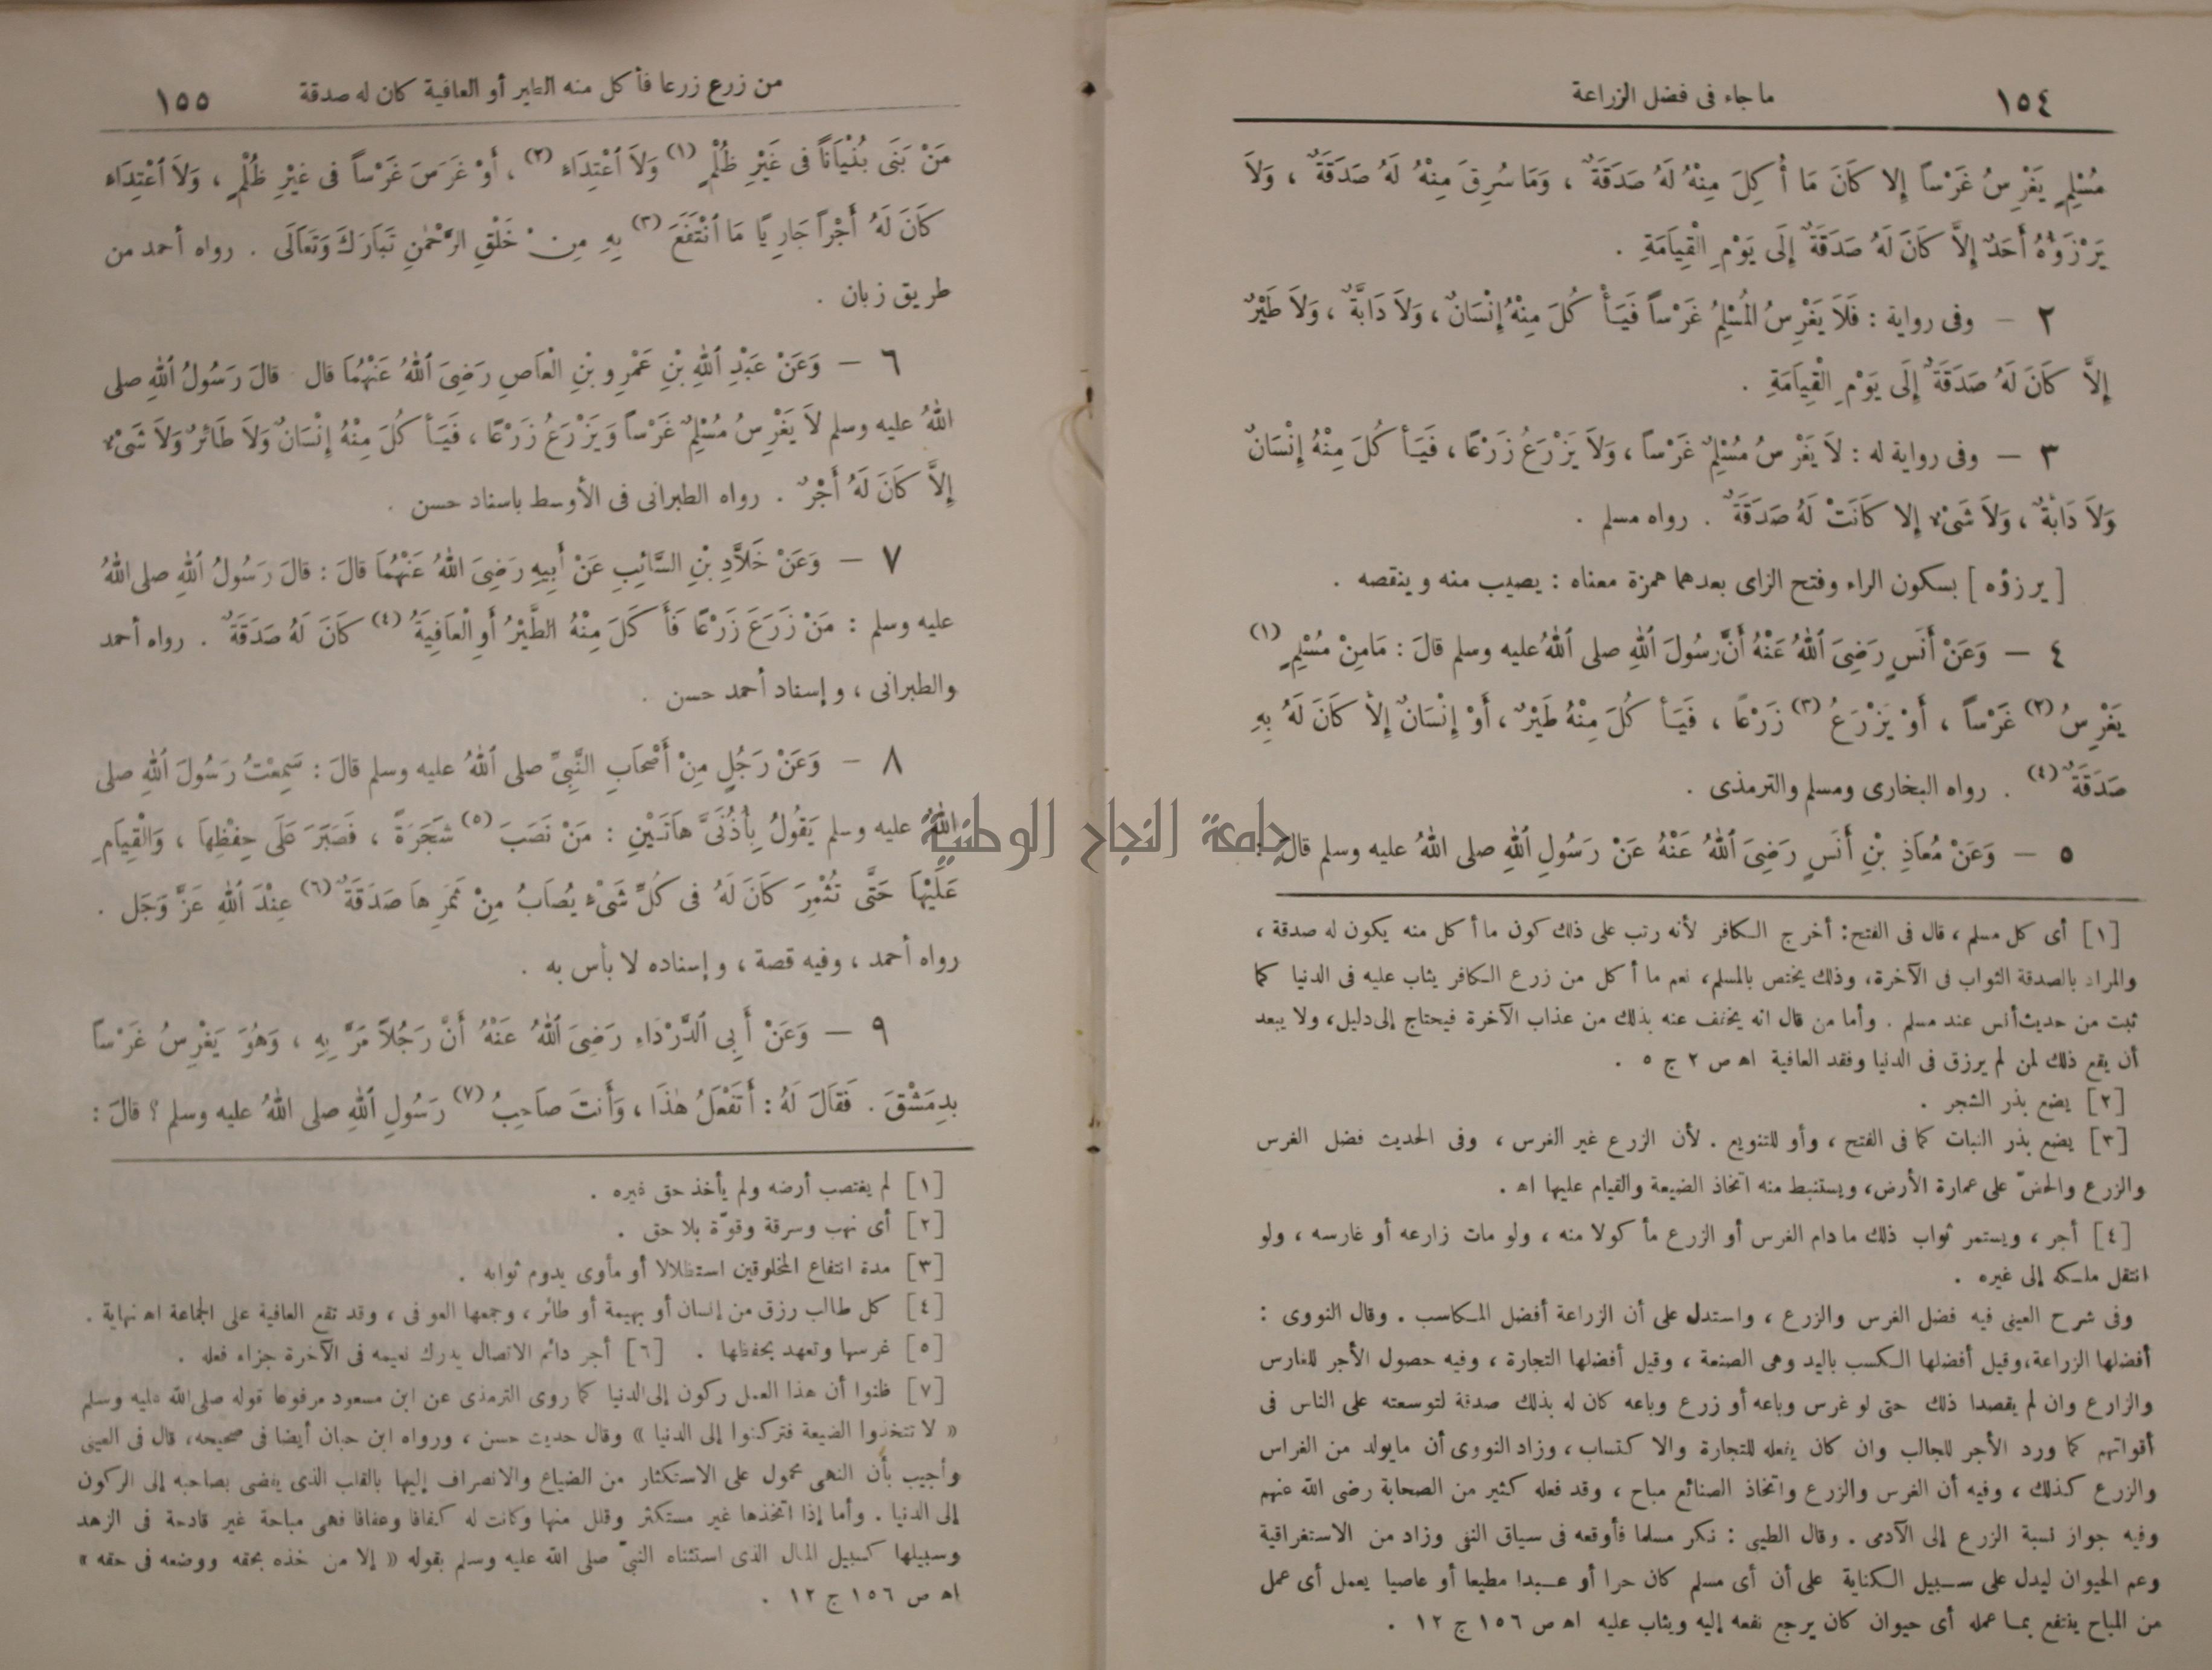 ما جاء فى فضل الزراعة ١٥٤
مُسْلِمٍ يَغْرِسُ غَرْساً إِلا كَانَ مَا أُكِلَ مِنْهُ لَهُ صَدَقَةٌ ، وَمَا سُرِقَ مِنْهُ لَهُ صَدَقَةٌ ، وَلَا
يَرْزَؤُهُ أَحَدٌ إِلَّا كَانَ لَهُ صَدَقَةٌ إِلَى يَوْمِ الْقِيَامَةِ .
٢ – وفى رواية : فَلَا يَغْرِسُ الْمُسْلِمُ غَرْساً فَيَأْكُلَ مِنْهُ إِنْسَانٌ ، وَلَا دَابَّةٌ ، وَلَا طَيْرٌ
إِلَّا كَانَ لَهُ صَدَقَةٌ إِلَى يَوْمِ الْقِيَامَةِ .
٣ – وفى رواية له : لَا يَغْرِسُ مُسْلِمٌ غَرْساً ، وَلَا يَزْرَعُ زَرْعًا ، فَيَأْكُلَ مِنْهُ إِنْسَانٌ
وَلَا دَابَّةٌ ، وَلَا شَىْءٌ إِلا كَانَتْ لَهُ صَدَقَةٌ . رواه مسلم .
[ يرزؤه ] بسكون الراء وفتح الزاى بعدهما همزة معناه : يصيب منه وينقصه .
٤ – وَعَنْ أَنَسٍ رَضِىَ اللهُ عَنْهُ أَنَّ رَسُولَ اللهِ صلى اللهُ عليه وسلم قَالَ : مَامِنْ مُسْلِمٍ (١)
يَغْرِسُ (٢) غَرْساً ، أَوْ يَزْرَعُ (٣) زَرْعًا ، فَيَأْكُلَ مِنْهُ طَيْرٌ ، أَوْ إِنْسَانٌ إِلاَّ كَانَ لَهُ بِهِ
صَدَقَةٌ (٤) . رواه البخارى ومسلم والترمذى .
٥ – وَعَنْ مُعَاذِ بْنِ أَنَسٍ رَضِىَ اللهُ عَنْهُ عَنْ رَسُولِ اللهِ صلى اللهُ عليه وسلم قَالَ :
[١] أى كل مسلم ، قال فى الفتح : أخرج الكافر لأنه رتب على ذلك كون ما أكل منه يكون له صدقة ،
والمراد بالصدقة الثواب فى الآخرة، وذلك يختص بالمسلم، نعم ما أكل من زرع الكافر يثاب عليه فى الدنيا كما
ثبت من حديث أنس عند مسلم . وأما من قال انه يخفف عنه بذلك من عذاب الآخرة فيحتاج إلى دليل، ولا يبعد
أن يقع ذلك لمن لم يرزق فى الدنيا وفقد العافية اه ص ٢ ج ٥ .
[٢] يضع بذر الشجر .
[٣] يضع بذر النبات كما فى الفتح ، وأو للتنويع . لأن الزرع غير الغرس ، وفى الحديث فضل الغرس
والزرع والحضّ على عمارة الأرض، ويستنبط منه اتخاذ الضيعة والقيام عليها اه .
[٤] أجر ، ويستمر ثواب ذلك ما دام الغرس أو الزرع مأكولا منه ، ولو مات زارعه أو غارسه ، ولو
انتقل ملكه إلى غيره .
وفى شرح العينى فيه فضل الغرس والزرع ، واستدل على أن الزراعة أفضل المكاسب . وقال النووى :
أفضلها الزراعة، وقيل أفضلها الكسب باليد وهى الصنعة ، وقيل أفضلها التجارة ، وفيه حصول الأجر للغارس
والزارع وان لم يقصدا ذلك حتى لو غرس وباعه أو زرع وباعه كان له بذلك صدقة لتوسعته على الناس فى
أقواتهم كما ورد الأجر للجالب وان كان يفعله للتجارة والاكتساب ، وزاد النووى أن مايولد من الغراس
والزرع كذلك ، وفيه أن الغرس والزرع واتخاذ الصنائع مباح ، وقد فعله كثير من الصحابة رضى الله عنهم
وفيه جواز نسبة الزرع إلى الآدمى . وقال الطيبى : نكر مسلما فأوقعه فى سياق النفى وزاد من الاستغراقية
وعم الحيوان ليدل على سبيل الكناية على أن أى مسلم كان حرا أو عبدا مطيعا أو عاصيا يعمل أى عمل
من المباح ينتفع بما عمله أى حيوان كان يرجع نفعه إليه ويثاب عليه اه ص ١٥٦ ج ١٢ .
من زرع زرعا فأكل منه الطير أو العافية كان له صدقة ١٥٥
مَنْ بَنَى بُنْيَانًا فى غَيْرِ ظُلْمٍ (١) وَلَا اعْتِدَاء (٢) ، أَوْ غَرَسَ غَرْساً فى غَيْرِ ظُلْمٍ ، وَلَا اعْتِدَاء
كَانَ لَهُ أَجْراً جَارِيًا مَا انْتَفَعَ (٣) بِهِ مِنْ خَلْقِ الرَّحْمٰنِ تَبَارَكَ وَتَعَالَى . رواه أحمد من
طريق زبان .
٦ – وَعَنْ عَبْدِ اللهِ بْنِ عَمْرِو بْنِ الْعَاصِ رَضِىَ اللهُ عَنْهُمَا قال قالَ رَسُولُ اللهِ صلى
اللهُ عليه وسلم لَا يَغْرِسُ مُسْلِمٌ غَرْساً وَيَزْرَعُ زَرْعًا ، فَيَأْكُلَ مِنْهُ إِنْسَانٌ وَلَا طَائِرٌ وَلَا شَىْءٌ
إِلَّا كَانَ لَهُ أَجْرٌ . رواه الطبرانى فى الأوسط باسناد حسن .
٧ – وَعَنْ خَلَّادِ بْنِ السَّائِبِ عَنْ أَبِيهِ رَضِىَ اللهُ عَنْهُمَا قالَ : قالَ رَسُولُ اللهِ صلى اللهُ
عليه وسلم : مَنْ زَرَعَ زَرْعًا فَأَكَلَ مِنْهُ الطَّيْرُ أَوِ الْعَافِيَةُ (٤) كَانَ لَهُ صَدَقَةٌ . رواه أحمد
والطبرانى ، وإسناد أحمد حسن .
٨ – وَعَنْ رَجُلٍ مِنْ أَصْحَابِ النَّبِىِّ صلى اللهُ عليه وسلم قالَ : سَمِعْتُ رَسُولَ اللهِ صلى
اللهُ عليه وسلم يَقُولُ بِأُذُنَىَّ هَاتَيْنِ : مَنْ نَصَبَ (٥) شَجَرَةً ، فَصَبَرَ عَلَى حِفْظِهَا ، وَالْقِيَامِ
عَلَيْهَا حَتَّى تُثْمِرَ كَانَ لَهُ فى كُلِّ شَىْءٍ يُصَابُ مِنْ ثَمَرِهَا صَدَقَةٌ (٦) عِنْدَ اللهِ عَزَّ وَجَل .
رواه أحمد ، وفيه قصة ، وإسناده لا بأس به .
٩ – وَعَنْ أَبِى الدَّرْدَاءِ رَضِىَ اللهُ عَنْهُ أَنَّ رَجُلاً مَرَّ بِهِ ، وَهُوَ يَغْرِسُ غَرْساً
بِدِمَشْقَ . فَقَالَ لَهُ : أَتَفْعَلُ هٰذَا ، وَأَنتَ صَاحِبُ (٧) رَسُولِ اللهِ صلى اللهُ عليه وسلم ؟ قالَ :
[١] لم يغتصب أرضه ولم يأخذ حق غيره .
[٢] أى نهب وسرقة وقوّة بلا حق .
[٣] مدة انتفاع المخلوقين استظلالا أو مأوى يدوم ثوابه .
[٤] كل طالب رزق من إنسان أو بهيمة أو طائر ، وجمعها العوافى ، وقد تقع العافية على الجماعة اه نهاية .
[٥] غرسها وتعهد بحفظها . [٦] أجر دائم الاتصال يدرك نعيمه فى الآخرة جزاء فعله .
[٧] ظنوا أن هذا العمل ركون إلى الدنيا كما روى الترمذى عن ابن مسعود مرفوعا قوله صلى الله عليه وسلم
« لا تتخذوا الضيعة فتركنوا إلى الدنيا » وقال حديث حسن ، ورواه ابن حبان أيضا فى صحيحه، قال فى العينى
وأجيب بأن النهى محمول على الاستكثار من الضياع والانصراف إليها بالقلب الذى يفضى بصاحبه إلى الركون
إلى الدنيا . وأما إذا اتخذها غير مستكثر وقلل منها وكانت له كفافا وعفافا فهى مباحة غير قادحة فى الزهد
وسبيلها كسبيل المال الذى استثناه النبىّ صلى الله عليه وسلم بقوله « إلا من خذه بحقه ووضعه فى حقه »
اه ص ١٥٦ ج ١٢ .
جامعة النجاح الوطنية